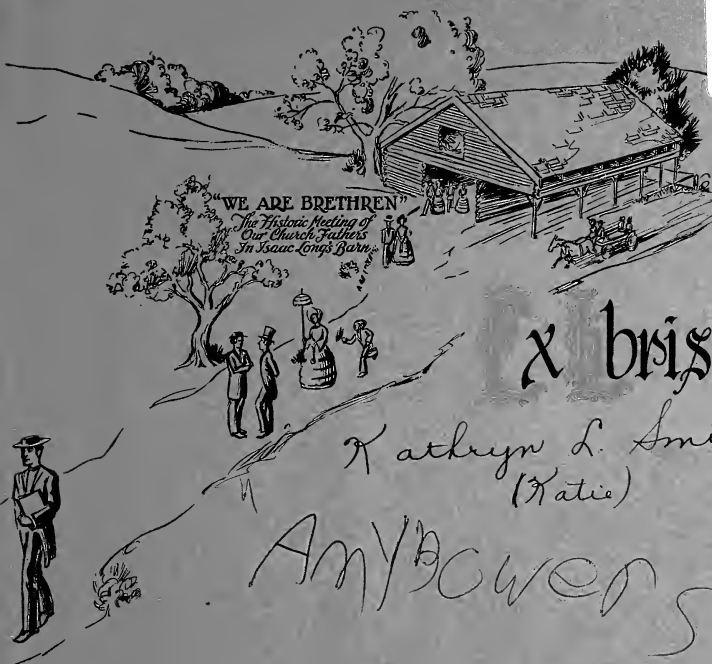 "WE ARE BRETHREN"
The Historic Meeting of
Our Church Fathers
In Isaac Long's Barn
Ex Libris
Kathryn L. Smi
(Katie)
Amy Bowers